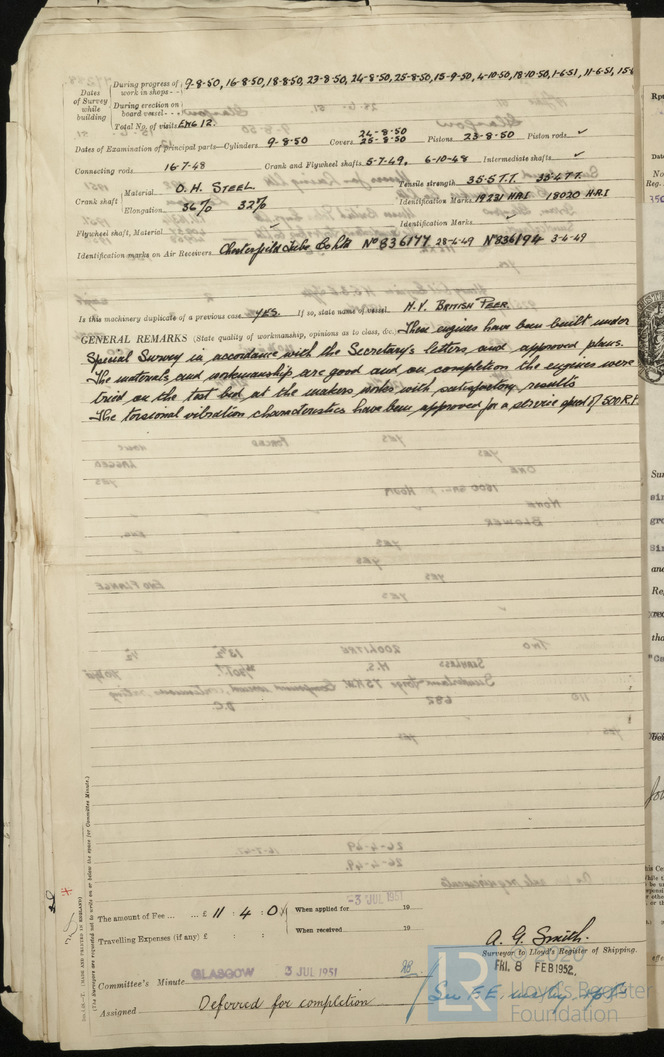 Dates of Survey while building
During progress of work in shops - - 9-8-50, 16-8-50, 18-8-50, 23-8-50, 24-8-50, 25-8-50, 15-9-50, 4-10-50, 18-10-50, 1-6-51, 11-6-51, 15-
During erection on board vessel - - -
Total No. of visits ENG 12.
Dates of Examination of principal parts—Cylinders 9-8-50 Covers 24-8-50 25-8-50 Pistons 23-8-50 Piston rods ✓
Connecting rods 16-7-48 Crank and Flywheel shafts 5-7-49, 6-10-48 Intermediate shafts ✓
Crank shaft Material O.H. STEEL Tensile strength 35·5 T.T. 38·4 T.T.
Elongation 36% 32% Identification Marks 19231 HRI 18020 HRI
Flywheel shaft, Material ✓ Identification Marks ✓
Identification marks on Air Receivers Chesterfield Tube Co Ltd No 836177 28-4-49 No 836194 3-4-49
Is this machinery duplicate of a previous case YES. If so, state name of vessel M.V. BRITISH PEER.
GENERAL REMARKS (State quality of workmanship, opinions as to class, &c. These engines have been built under
Special Survey in accordance with the Secretary's letters and approved plans.
The materials and workmanship are good and on completion the engines were
tried on the test bed at the makers works with satisfactory results
The torsional vibration characteristics have been approved for a service speed of 500 R.P.
(MADE AND PRINTED IN ENGLAND)
(The Surveyors are requested not to write on or below the space for Committee Minute.)
The amount of Fee ... ... £ 11 : 4 : 0
When applied for 19
-3 JUL 1951
Travelling Expenses (if any) £ : :
When received 19
A. G. Smith.
Surveyor to Lloyd's Register of Shipping.
FRI. 8 FEB 1952.
Committee's Minute GLASGOW 3 JUL 1951
Assigned Deferred for completion
See F.E.
LR
Lloyd's Register
Foundation